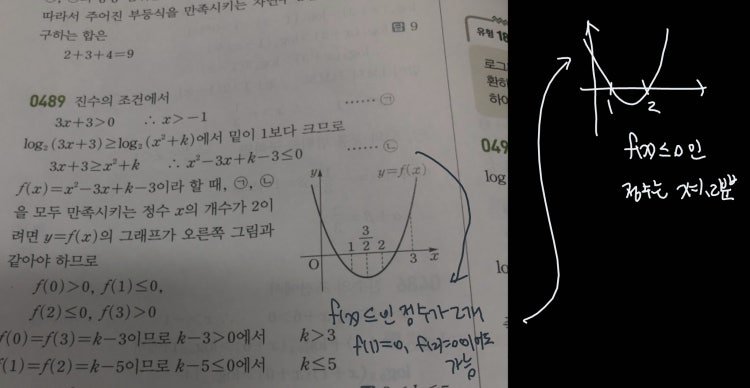 따라서 주어진 부등식을 만족시키는 자연수
구하는 합은
2+3+4=9
답 9
0489 진수의 조건에서
3x+3>0 ∴ x>-1 ……㉠
log₂(3x+3)≥log₂(x²+k)에서 밑이 1보다 크므로
3x+3≥x²+k ∴ x²-3x+k-3≤0 ……㉡
f(x)=x²-3x+k-3이라 할 때, ㉠, ㉡
을 모두 만족시키는 정수 x의 개수가 2이
려면 y=f(x)의 그래프가 오른쪽 그림과
같아야 하므로
f(0)>0, f(1)≤0,
f(2)≤0, f(3)>0
f(0)=f(3)=k-3이므로 k-3>0에서 k>3
f(1)=f(2)=k-5이므로 k-5≤0에서 k≤5
y y=f(x)
3/2
1 2
O 3 x
f(x)≤인 정수가 2개
f(1)=0, f(2)=0이어도
가능
유형 18
로그
환하
하여
049
log
lo
1 2
f(x)≤0인
정수는 x=1, 2뿐